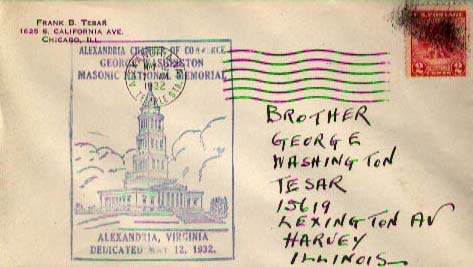 FRANK B. TESAR
1625 S. CALIFORNIA AVE.
CHICAGO, ILL.
ALEXANDRIA CHAMBER OF COMMERCE
GEORGE WASHINGTON
MASONIC NATIONAL MEMORIAL
1932
TEMPLE STA.
ALEXANDRIA, VIRGINIA
DEDICATED MAY 12, 1932.
U.S. POSTAGE
2 CENTS 2
BROTHER
GEORGE
WASHINGTON
TESAR
15619
LEXINGTON AV
HARVEY
ILLINOIS